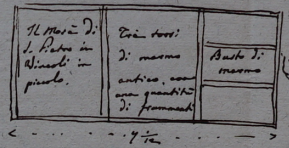 Il Mosè di
S. Pietro in
Vincoli in
piccolo.
Trè torsi
di marmo
antico, con
una quantità
di frammenti
Busto di
marmo